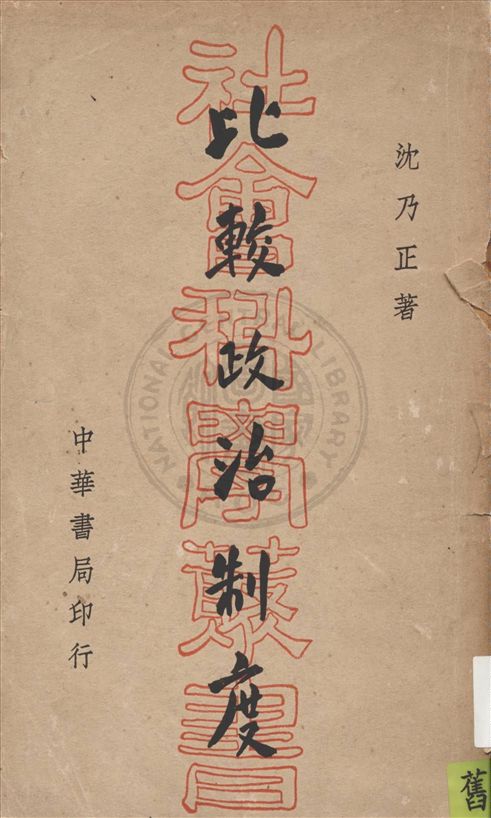 沈乃正著
比較政治制度
社會科學叢書
中華書局印行
NATIONAL CENTRAL LIBRARY
舊